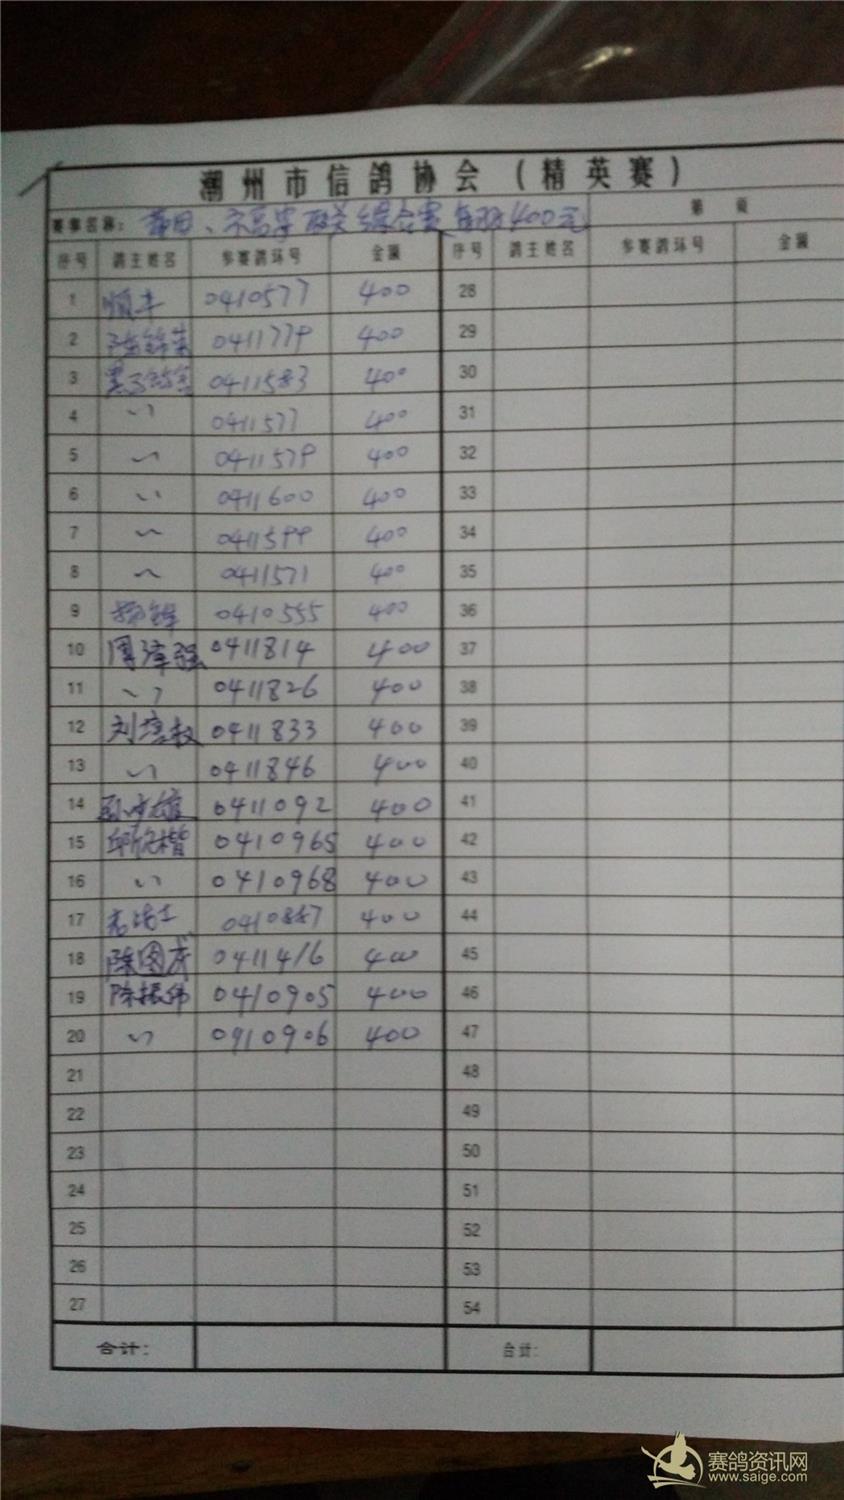 潮州市信鸽协会（精英赛）
赛事名称： 莆田、 两关综合赛 每羽400元 第 页
序号 鸽主姓名 参赛鸽环号 金额 序号 鸽主姓名 参赛鸽环号 金额
1 顺丰 0410577 400 28
2 0411779 400 29
3 0411583 400 30
4 〃 0411577 400 31
5 〃 0411579 400 32
6 〃 0411600 400 33
7 〃 0411599 400 34
8 〃 0411571 400 35
9 0410555 400 36
10 周泽强 0411814 400 37
11 〃 0411826 400 38
12 刘培 0411833 400 39
13 〃 0411846 400 40
14 0411092 400 41
15 邱欣楷 0410965 400 42
16 〃 0410968 400 43
17 0410887 400 44
18 陈图茂 0411416 400 45
19 陈振伟 0410905 400 46
20 〃 0910906 400 47
21 48
22 49
23 50
24 51
25 52
26 53
27 54
合计： 合计：
赛鸽资讯网
www.saige.com